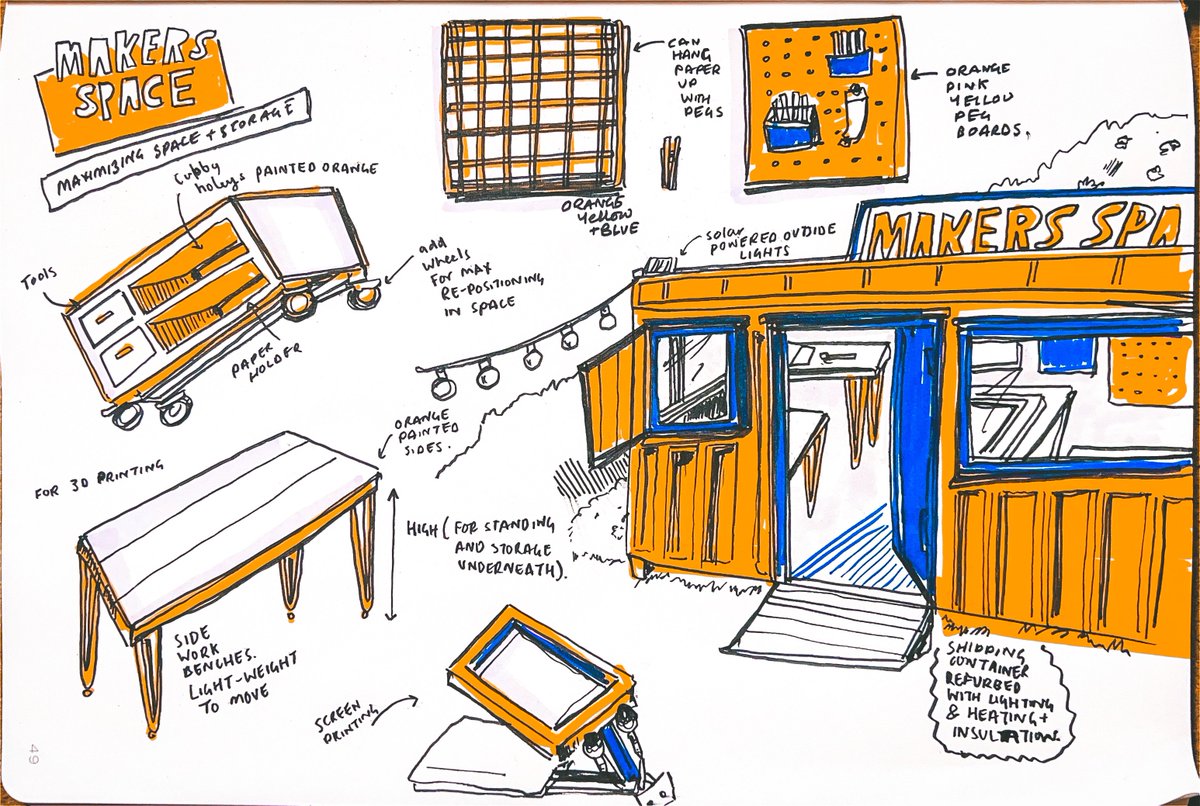 MAKERS
SPACE
MAXIMIZING SPACE + STORAGE
Cubby
holeys PAINTED ORANGE
TOOLS
PAPER
HOLDER
add
wheels
FOR MAX
RE-POSITIONING
IN SPACE
CAN
HANG
PAPER
UP
WITH
PEGS
ORANGE
YELLOW
+ BLUE
ORANGE
PINK
YELLOW
PEG
BOARDS.
solar
POWERED OUTSIDE
LIGHTS
MAKERS SPA
FOR 3D PRINTING
ORANGE
PAINTED
SIDES.
HIGH (FOR STANDING
AND STORAGE
UNDERNEATH).
SIDE
WORK
BENCHES.
LIGHT-WEIGHT
TO MOVE
SCREEN
PRINTING
SHIPPING
CONTAINER
REFURBED
WITH LIGHTING
& HEATING +
INSULTATION.
49